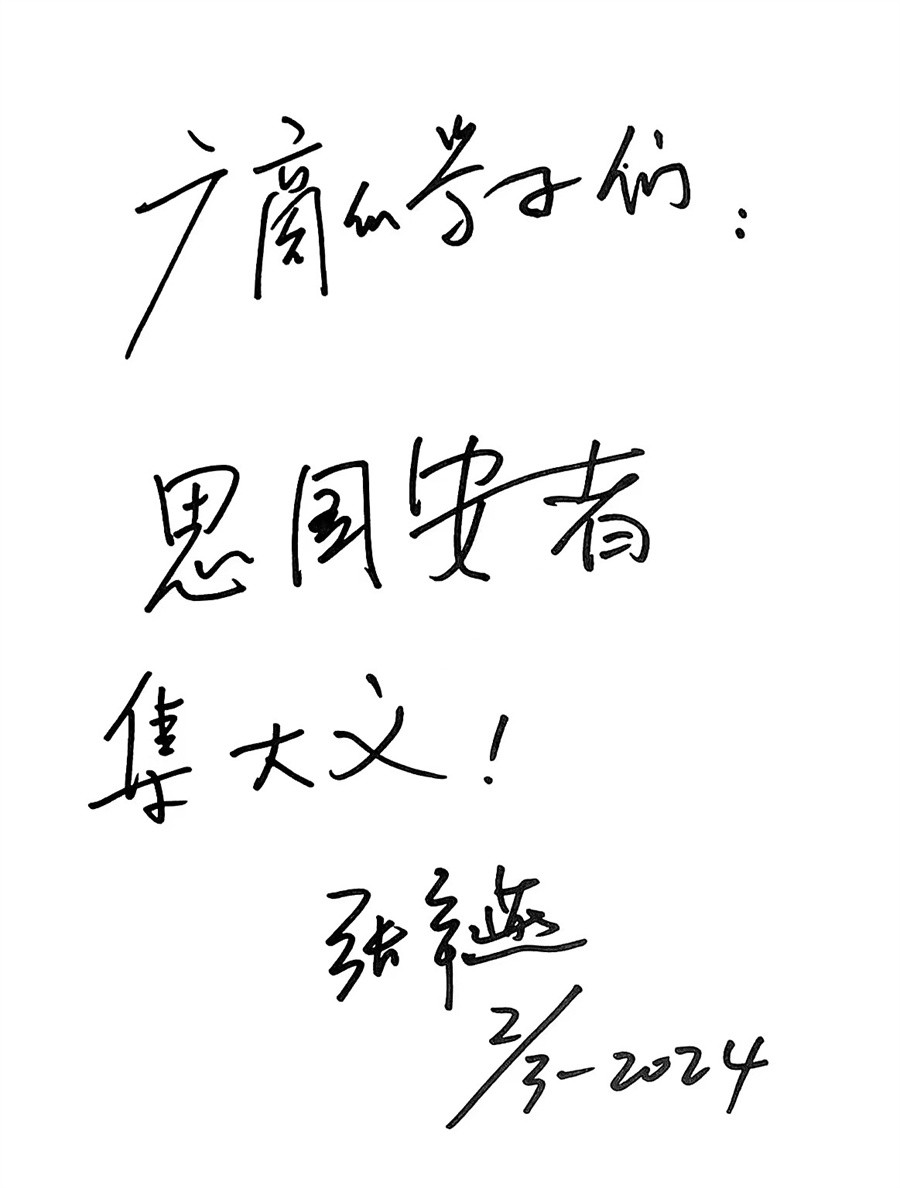 广商的学子们：
思国安者
集大文！
张辛燕
2/3-2024